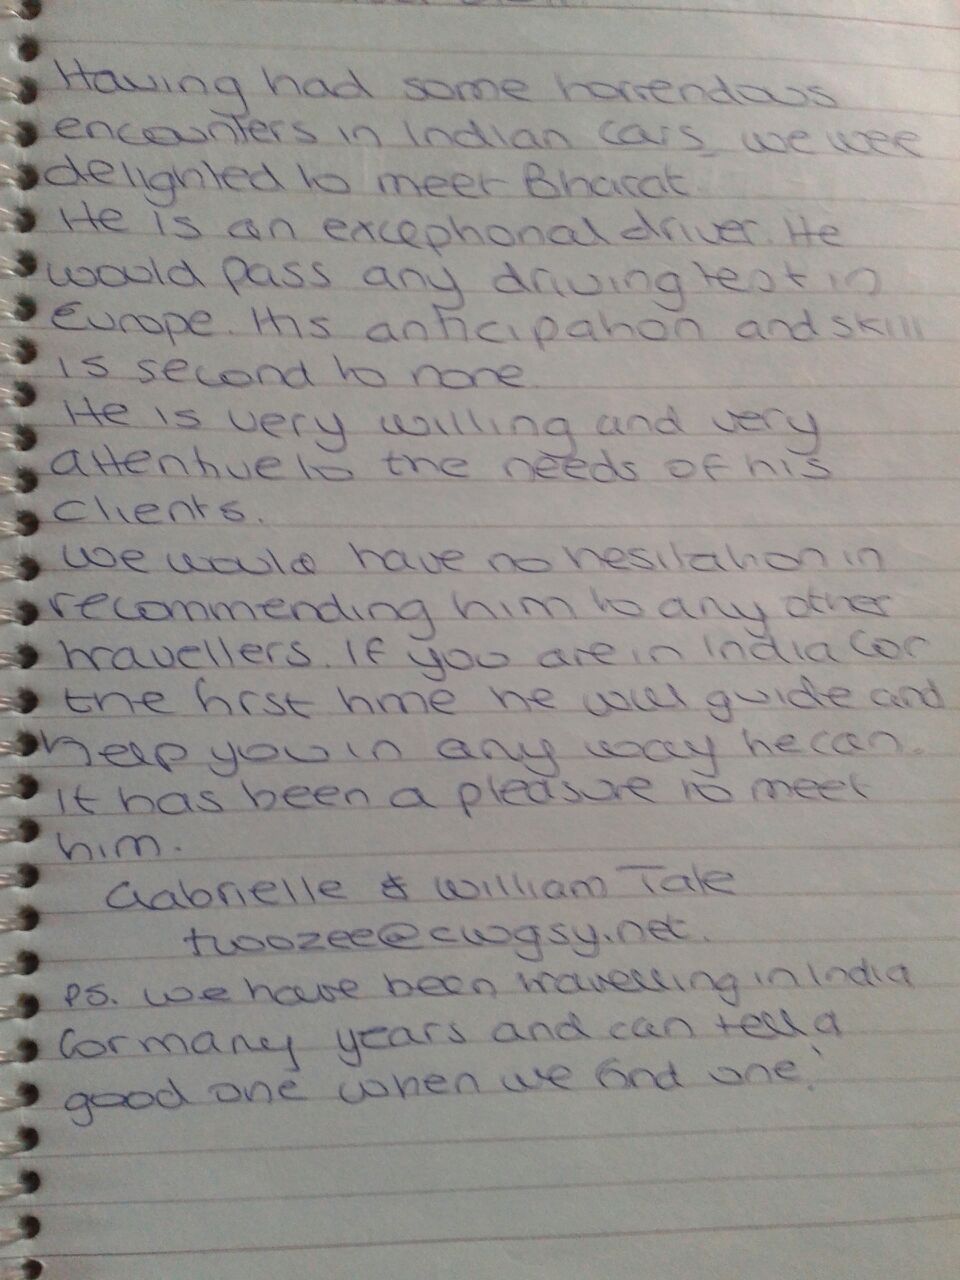 Having had some horrendous
encounters in Indian cars, we wee
delighted to meet Bharat.
He is an exceptional driver. He
would pass any driving test in
Europe. His anticipation and skill
is second to none.
He is very willing and very
attentive to the needs of his
clients.
We would have no hesitation in
recommending him to any other
travellers. If you are in India for
the first time he will guide and
help you in any way he can.
It has been a pleasure to meet
him.
Gabrielle & William Tate
twoozee@cwgsy.net.
PS. We have been travelling in India
for many years and can tell a
good one when we find one!